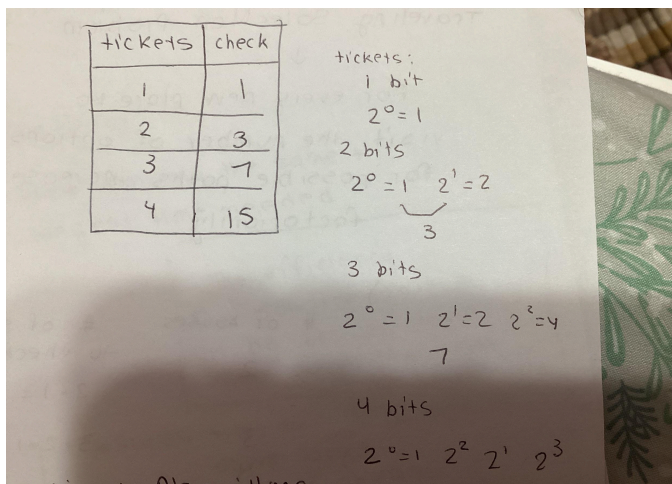 tickets check
1 1
2 3
3 7
4 15
tickets:
1 bit
2⁰=1
2 bits
2⁰=1 2¹=2
3
3 bits
2⁰=1 2¹=2 2²=4
7
4 bits
2⁰=1 2² 2¹ 2³